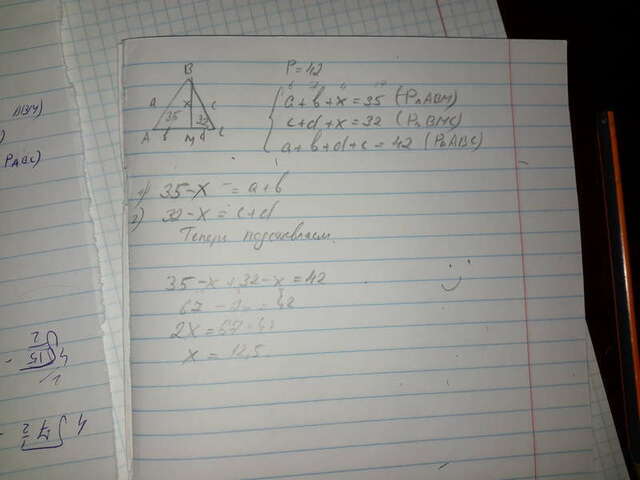 P=42
B
a x c
35 32
A b M d C
a+b+x=35 (P△ABM)
c+d+x=32 (P△BMC)
a+b+d+c=42 (P△ABC)
1) 35-x = a+b
2) 32-x = c+d
Теперь подставляем.
35-x+32-x=42
67-2x=42
2x=67-42
x=12,5
ABM)
)
PABC)